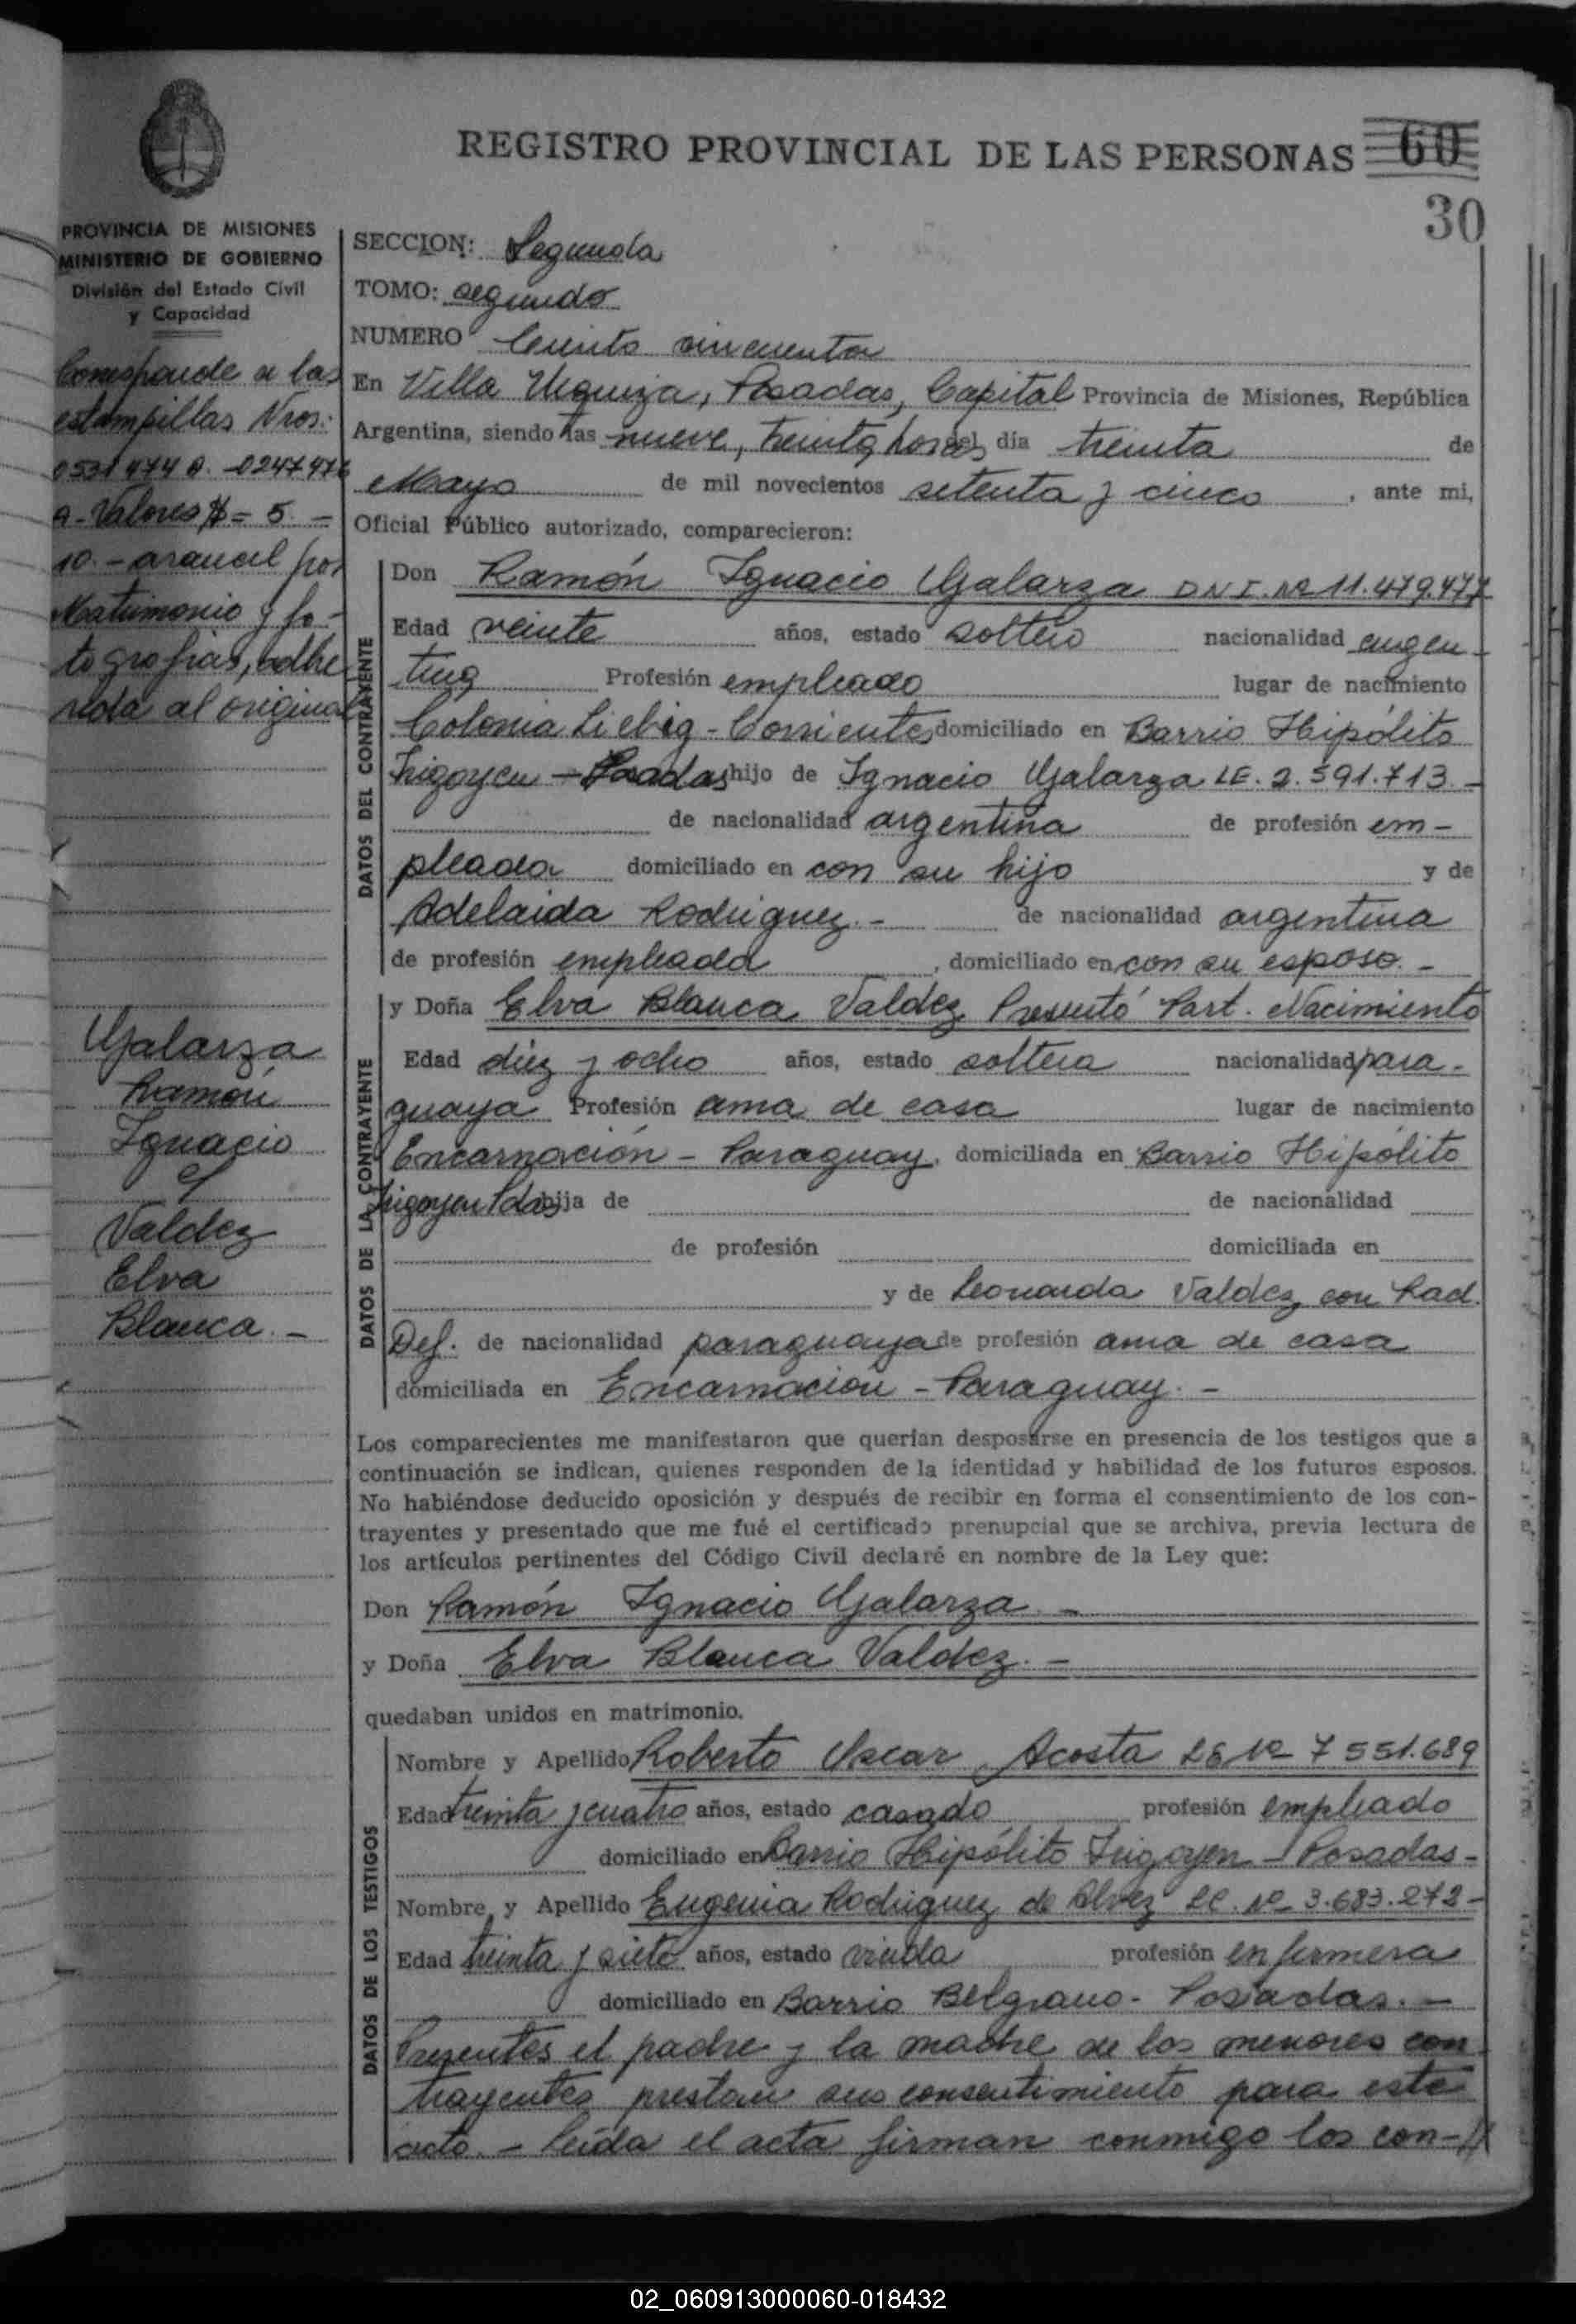 REGISTRO PROVINCIAL DE LAS PERSONAS 60
30
PROVINCIA DE MISIONES
MINISTERIO DE GOBIERNO
División del Estado Civil
y Capacidad
Corresponde a las
estampillas Nros:
0531474 A. -0247476
A-Valores $ = 5. -
10.- arancel por
Matrimonio y fo-
tografias, adhe
rida al original
Galarza
Ramón
Ignacio
y
Valdez
Elva
Blanca. -
SECCION: Segunda
TOMO: segundo
NUMERO Ciento cincuenta
En Villa Urquiza, Posadas, Capital Provincia de Misiones, República
Argentina, siendo las nueve, treinta horas del día treinta de
Mayo de mil novecientos setenta y cinco, ante mi,
Oficial Público autorizado, comparecieron:
DATOS DEL CONTRAYENTE
Don Ramón Ignacio Galarza D N I. Nº 11.479.477
Edad veinte años, estado soltero nacionalidad argen-
tina Profesión empleado lugar de nacimiento
Colonia Liebig - Corrientes domiciliado en Barrio Hipólito
Irigoyen - Posadas hijo de Ignacio Galarza LE. 2.591.713. -
de nacionalidad argentina de profesión em-
pleado domiciliado en con su hijo y de
Adelaida Rodriguez. - de nacionalidad argentina
de profesión empleada, domiciliado en con su esposo. -
DATOS DE LA CONTRAYENTE
y Doña Elva Blanca Valdez Presentó Part. Nacimiento
Edad diez y ocho años, estado soltera nacionalidad para-
guaya Profesión ama de casa lugar de nacimiento
Encarnación - Paraguay, domiciliada en Barrio Hipólito
Irigoyen Pdas hija de de nacionalidad
de profesión domiciliada en
y de Leonarda Valdez con Rad.
Def. de nacionalidad paraguaya de profesión ama de casa
domiciliada en Encarnacion - Paraguay. -
Los comparecientes me manifestaron que querían desposarse en presencia de los testigos que a
continuación se indican, quienes responden de la identidad y habilidad de los futuros esposos.
No habiéndose deducido oposición y después de recibir en forma el consentimiento de los con-
trayentes y presentado que me fué el certificado prenupcial que se archiva, previa lectura de
los artículos pertinentes del Código Civil declaré en nombre de la Ley que:
Don Ramón Ignacio Galarza. -
y Doña Elva Blanca Valdez. -
quedaban unidos en matrimonio.
DATOS DE LOS TESTIGOS
Nombre y Apellido Roberto Oscar Acosta LE Nº 7 551.689
Edad treinta y cuatro años, estado casado profesión empleado
domiciliado en Barrio Hipólito Irigoyen - Posadas -
Nombre y Apellido Eugenia Rodriguez de Alvez LC. Nº 3.683.272 -
Edad treinta y siete años, estado viuda profesión enfermera
domiciliado en Barrio Belgrano - Posadas. -
Presentes el padre y la madre de los menores con
trayentes prestan sus consentimiento para este
acto. - Leida el acta firman conmigo los con-//
02_060913000060-018432